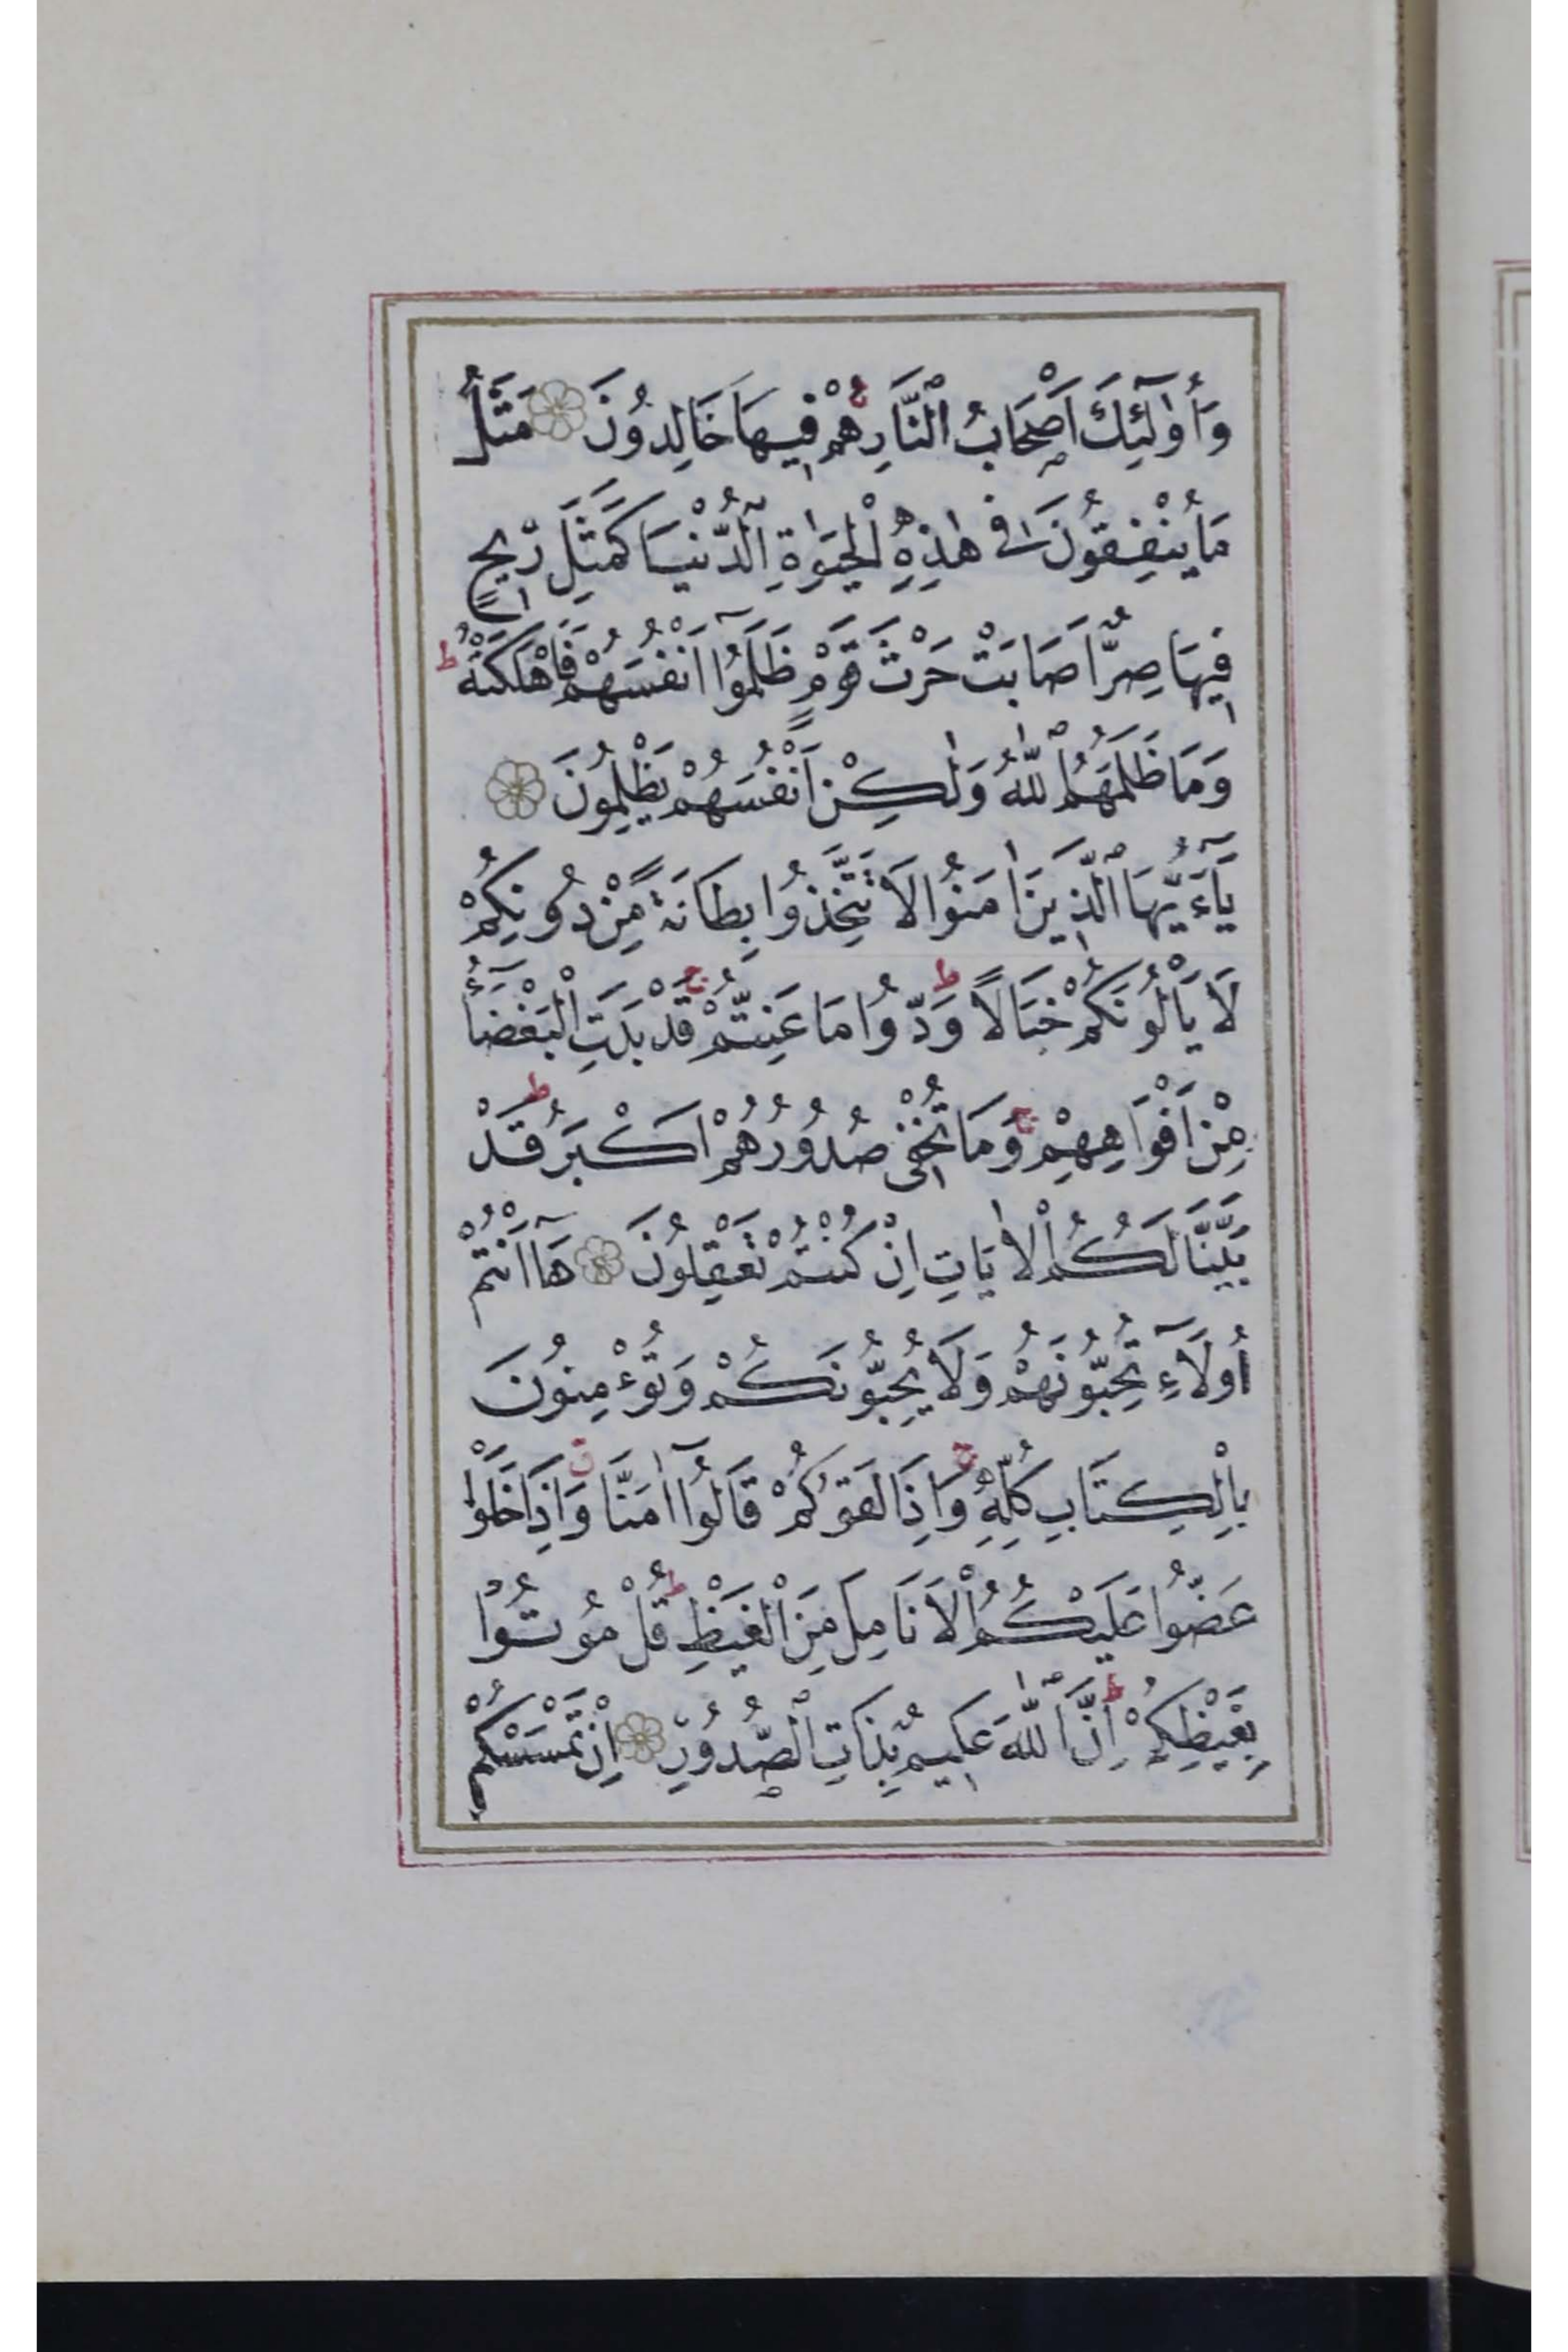 وَأُولٰٓئِكَ اَصْحَابُ النَّارِ هُمْ فِيهَا خَالِدُونَ مَثَلُ
مَا يُنْفِقُونَ فِي هٰذِهِ الْحَيٰوةِ الدُّنْيَا كَمَثَلِ رِيحٍ
فِيهَا صِرٌّ اَصَابَتْ حَرْثَ قَوْمٍ ظَلَمُوا اَنْفُسَهُمْ فَاَهْلَكَتْهُ ط
وَمَا ظَلَمَهُمُ اللّٰهُ وَلٰكِنْ اَنْفُسَهُمْ يَظْلِمُونَ
يَآءَيُّهَا الَّذِينَ اٰمَنُوا لَا تَتَّخِذُوا بِطَانَةً مِنْ دُونِكُمْ
لَا يَأْلُونَكُمْ خَبَالًا ط وَدُّوا مَا عَنِتُّمْ ج قَدْ بَدَتِ الْبَغْضَآءُ
مِنْ اَفْوَاهِهِمْ ج وَمَا تُخْفِي صُدُورُهُمْ اَكْبَرُ ط قَدْ
بَيَّنَّا لَكُمُ الْاٰيَاتِ اِنْ كُنْتُمْ تَعْقِلُونَ هَآ اَنْتُمْ
اُولَآءِ تُحِبُّونَهُمْ وَلَا يُحِبُّونَكُمْ وَتُؤْمِنُونَ
بِالْكِتَابِ كُلِّهِ ج وَاِذَا لَقُوكُمْ قَالُوٓا اٰمَنَّا ق وَاِذَا خَلَوْا
عَضُّوا عَلَيْكُمُ الْاَنَامِلَ مِنَ الْغَيْظِ ط قُلْ مُوتُوا
بِغَيْظِكُمْ ط اِنَّ اللّٰهَ عَلِيمٌ بِذَاتِ الصُّدُورِ اِنْ تَمْسَسْكُمْ